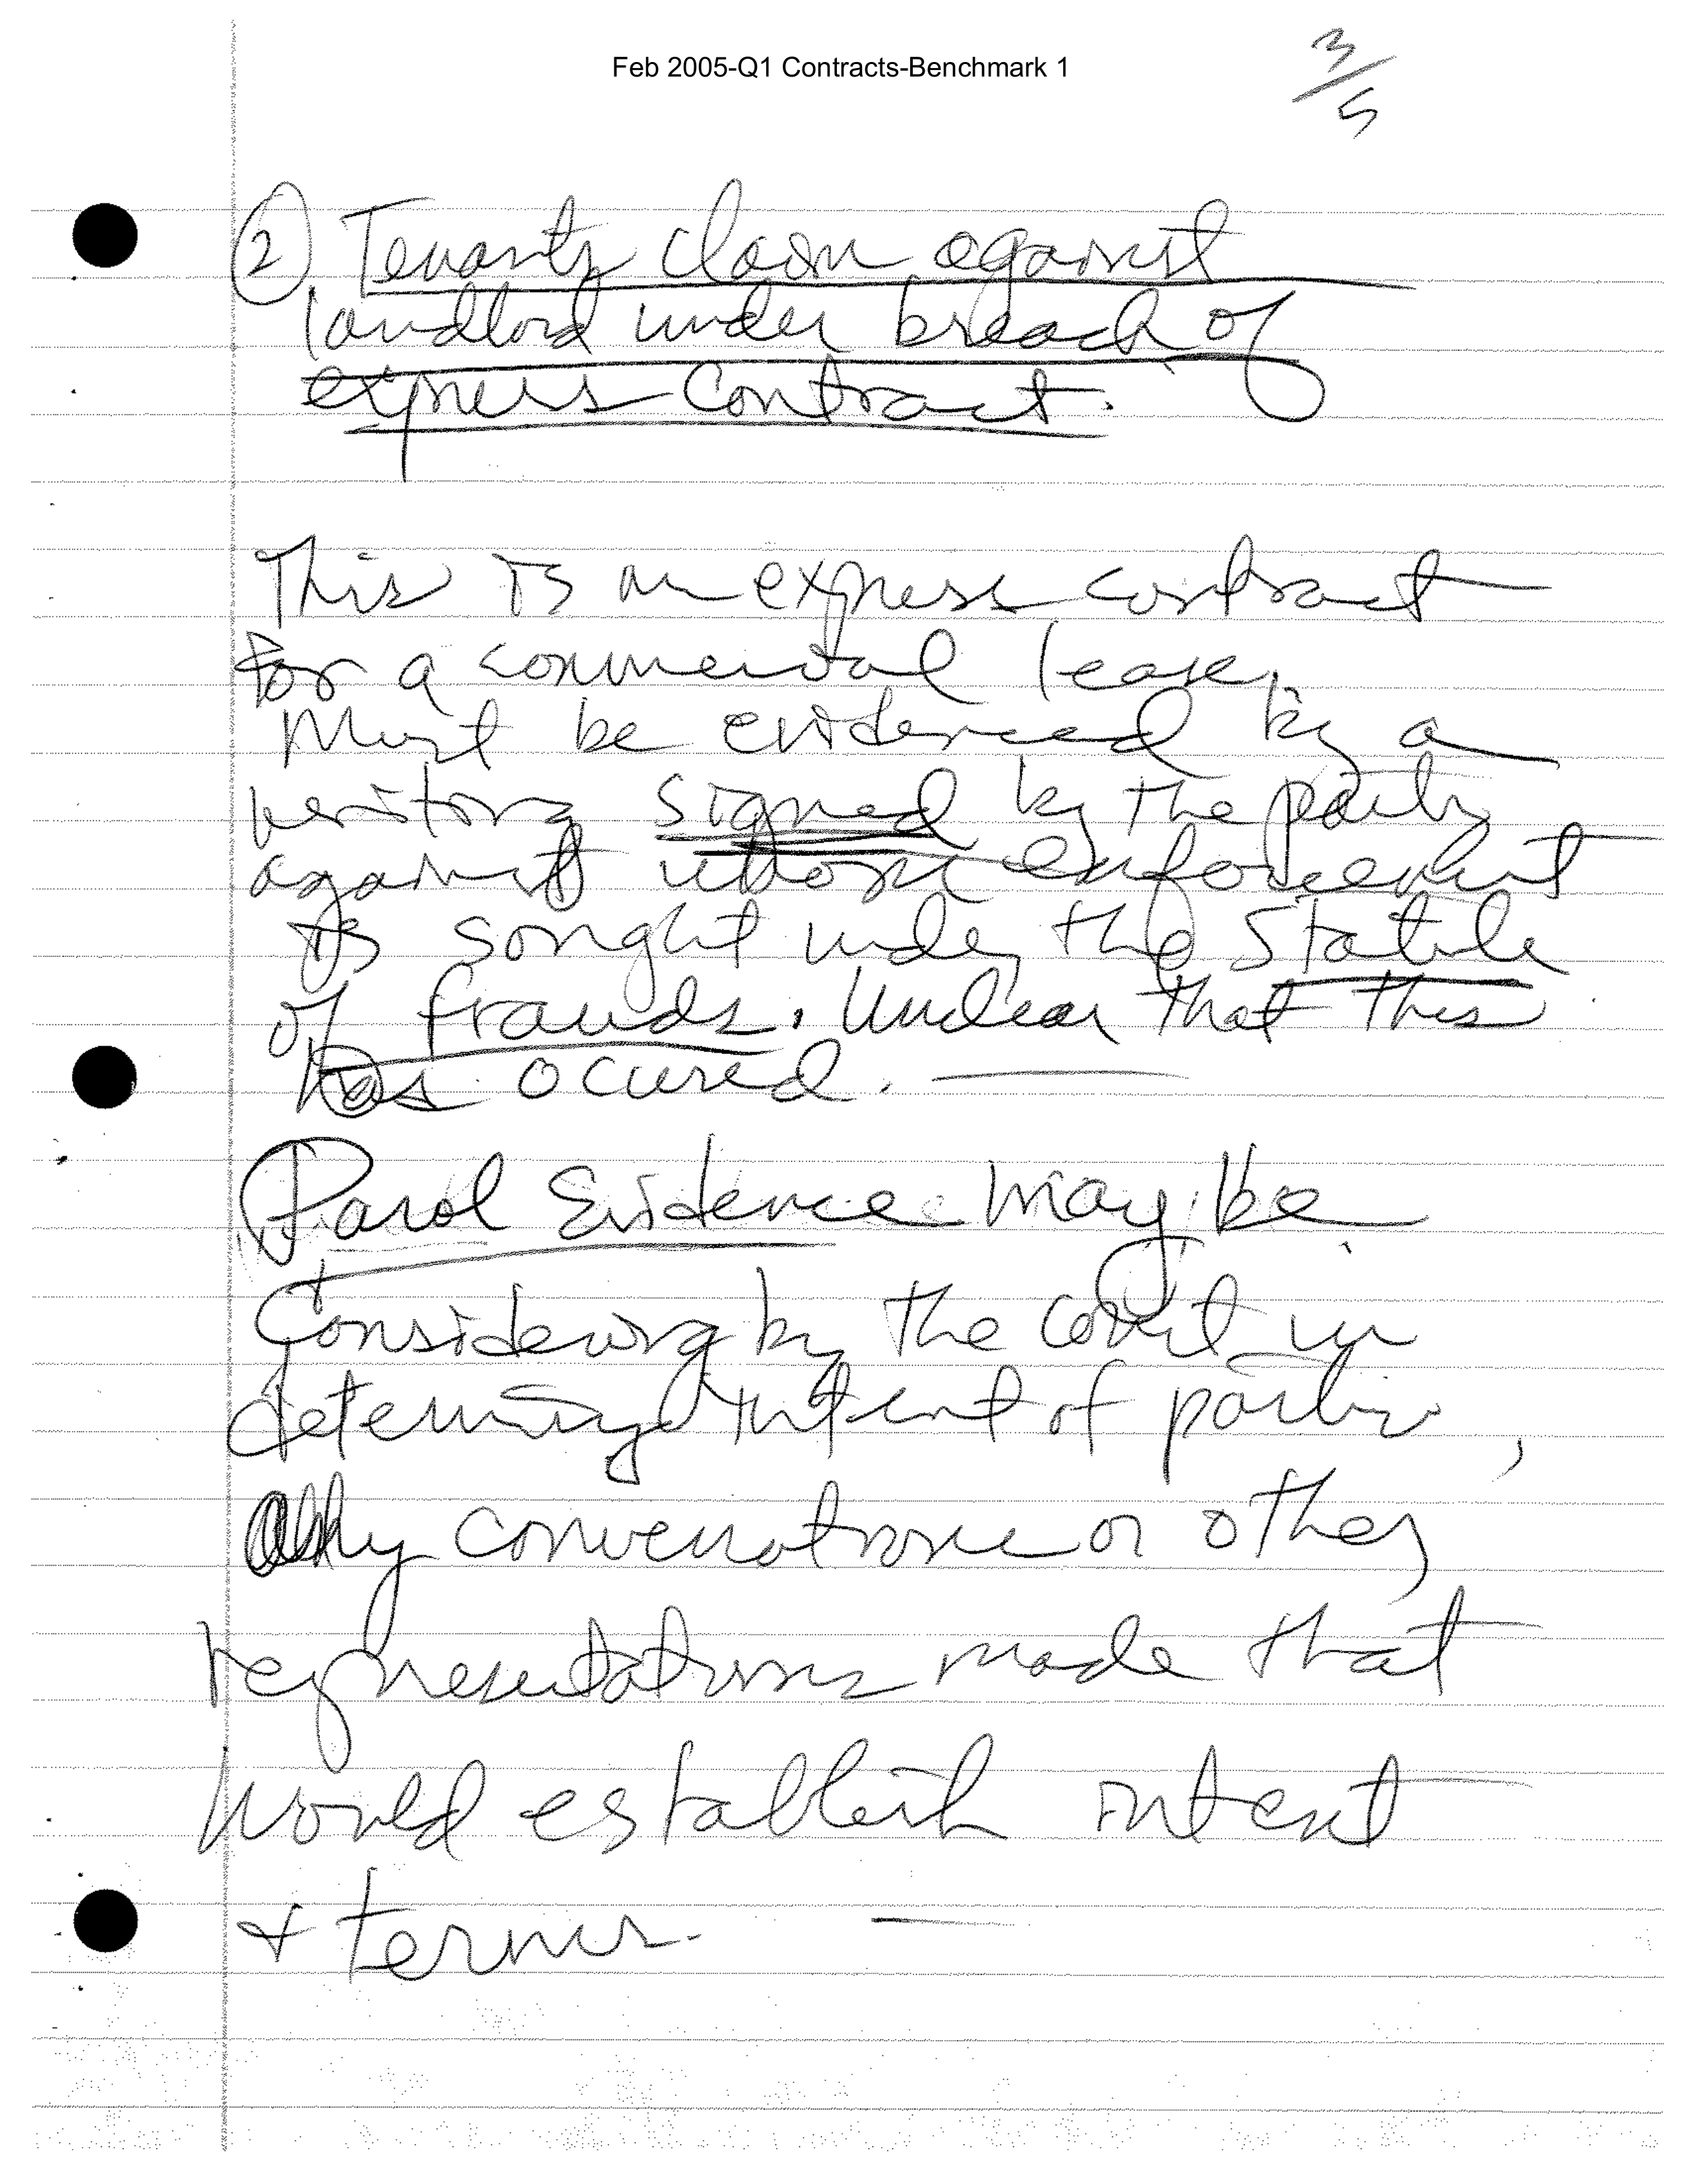 Feb 2005-Q1 Contracts-Benchmark 1
3/5
② Tenants claim against
landlord under breach of
express contract.
This is an express contract
for a commercial lease.
Must be evidenced by a
writing signed by the party
against whom enforcement
is sought under the Statute
of frauds. Unclear that this
has ocured. —
Parol Evidence may be
Considering by the court in
determing intent of parties,
Any conversations or other
representations made that
would establish intent
& terms. —